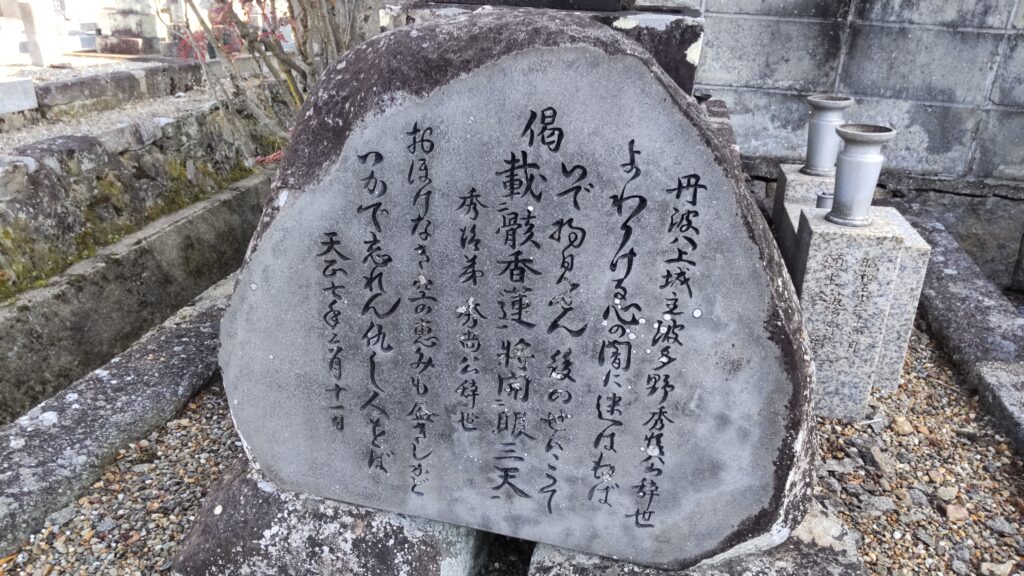 丹波八上城主波多野秀治公辞世
よわりける心の闇に迷はねば
いで物見せん後の世にこそ
偈
載骸香蓮将開眼三天
秀治弟秀尚公辞世
おほけなき空の恵みも尽きしかど
いかで忘れん仇し人をば
天正七年六月十一日